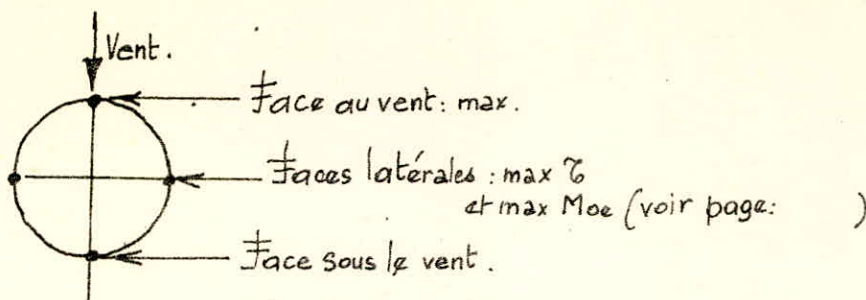 Vent.
Face au vent: max.
Faces latérales : max τ
et max Moe (voir page:        )
Face sous le vent.